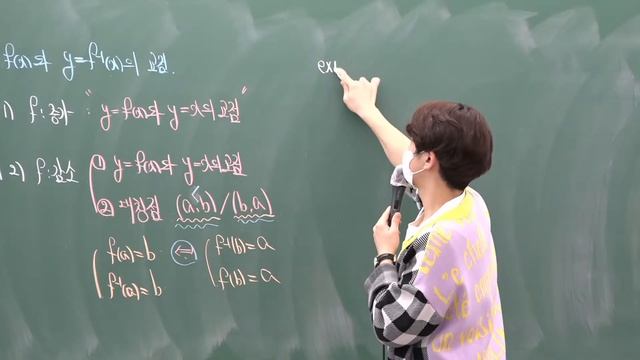 f(x)와 y=f⁻¹(x)의 교점.
1) f:증가 "y=f(x)와 y=x의 교점"
2) f:감소 ① y=f(x)와 y=x의 교점
② 대칭점 (a,b) / (b,a)
f(a)=b ⇔ f⁻¹(b)=a
f⁻¹(a)=b f(b)=a
ex